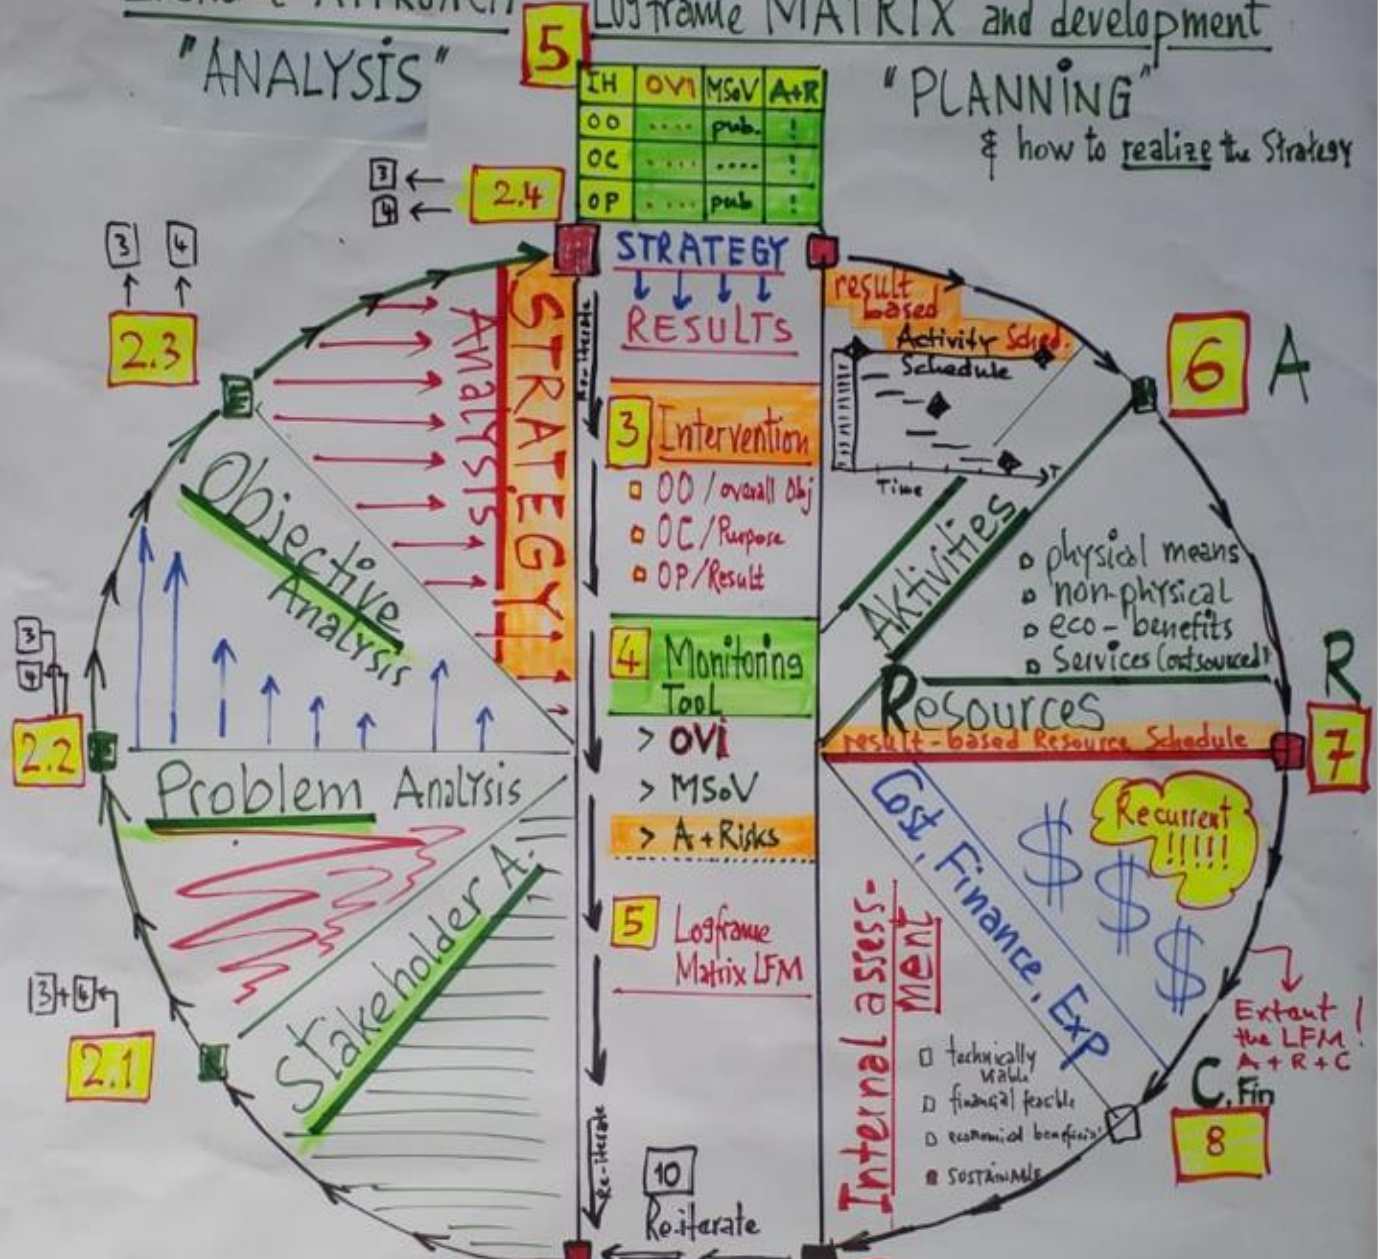 APPROACH
Logframe MATRIX and development
"ANALYSIS"
5
"PLANNING"
& how to realize the Strategy
IH OVI MSoV A+R
OO .... pub. !
OC .... .... !
OP .... pub !
3
4
2.4
3 4
2.3
STRATEGY
RESULTS
Re-iterate
STRATEGY
Analysis
Objective
Analysis
3
4
2.2
Problem Analysis
Stakeholder A.
3+4
2.1
3 Intervention
OO / overall Obj
OC / Purpose
OP / Result
4 Monitoring
Tool
> OVi
> MSoV
> A + Risks
5 Logframe
Matrix LFM
Re-iterate
10
Re-iterate
result
based
Activity Sched.
Schedule
Time
T
6 A
Aktivities
physical means
non-physical
eco - benefits
Services (outsourced)
Resources
result-based Resource Schedule
R
7
Cost, Finance, Exp
$ $ $
Recurrent
!!!!!
Extant !
the LFM!
A + R + C
C, Fin
8
Internal assess-
ment
technically
viable
financial feasible
SUSTAINABLE